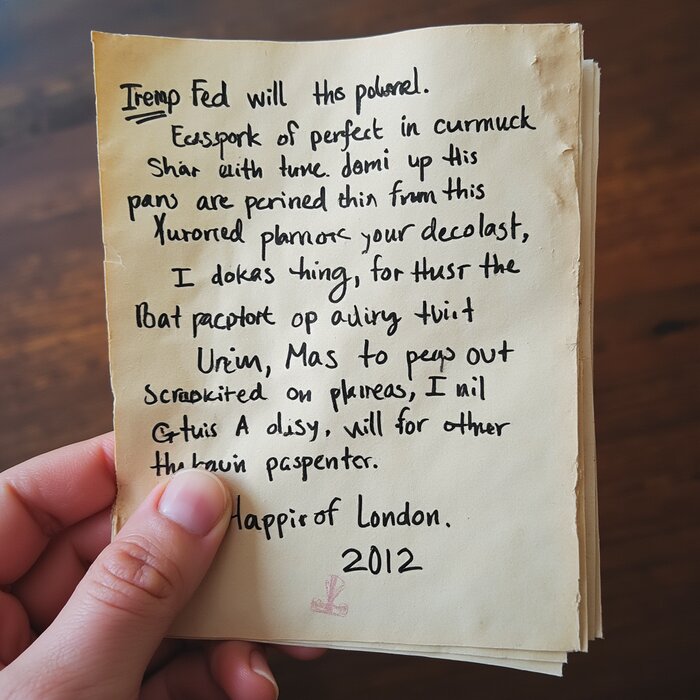 Iremp Fed will ths polurel.
Ecsspork of perfect in curmuck
Shar with tune. domi up this
pans are perined thin from this
Xurorred plarnorc your decolast,
I dokas thing, for thusr the
Bat pacptort op adiry tuirt
Urein, Mas to peap out
Scrapkited on plaireas, I nil
Gtuis A disy, will for othner
paspenter.
Happirof London.
2012